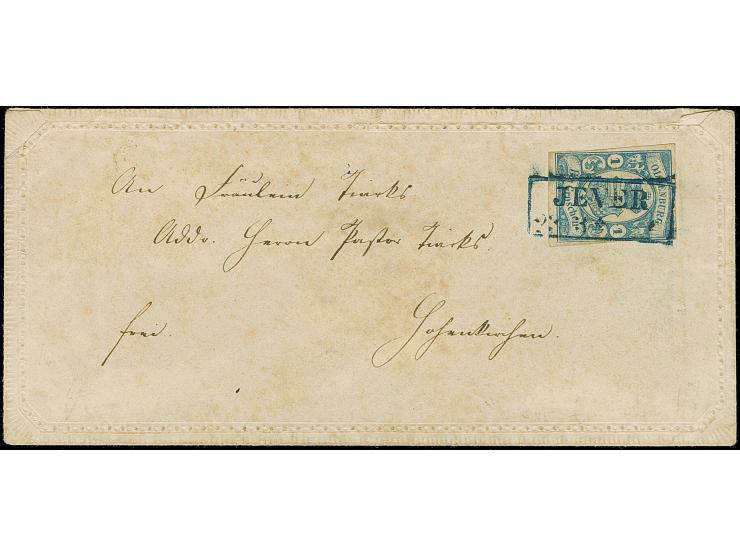 An Fräulein Tiarks
Addr. Herrn Pastor Tiarks.
frei. Hohenkirchen.
OLDENBURG
JEVER